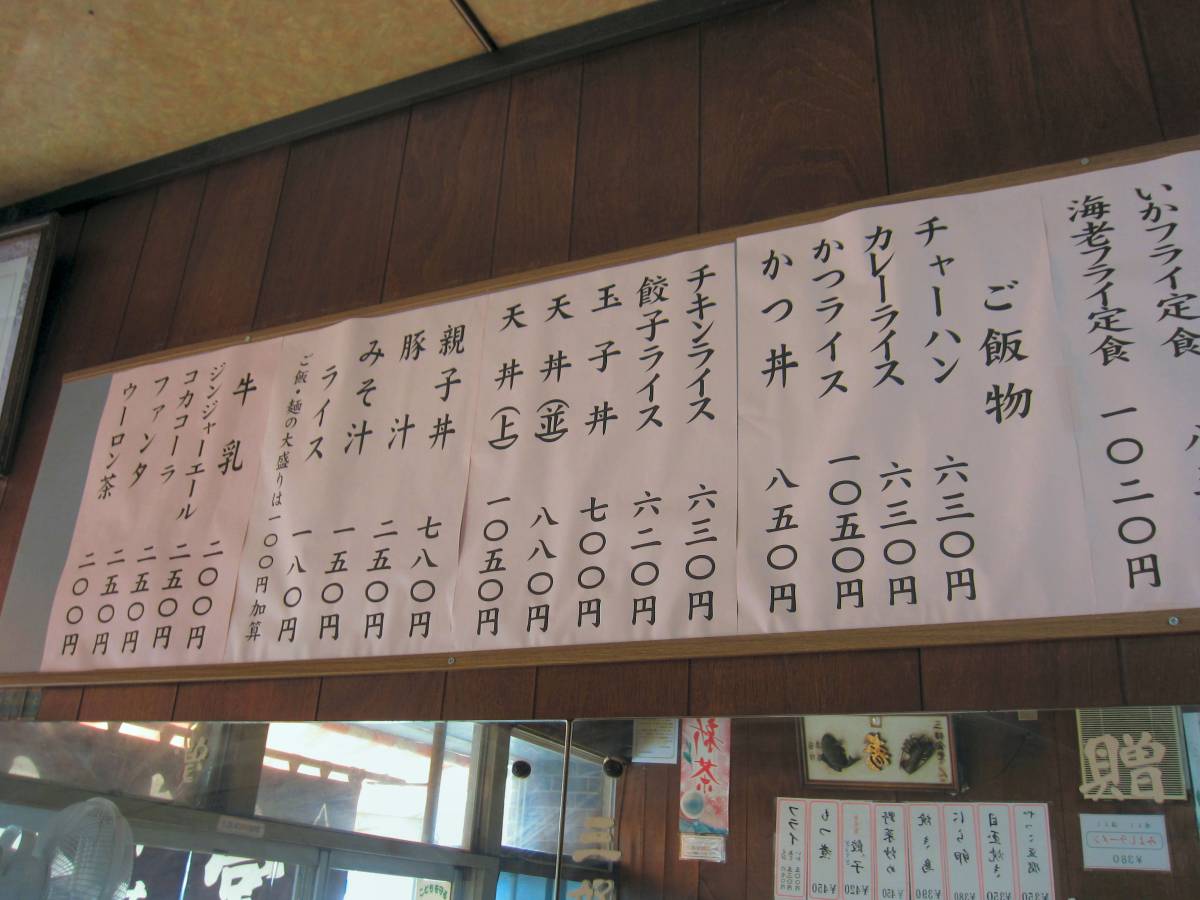 いかフライ定食
海老フライ定食 一〇二〇円
ご飯物
チャーハン 六三〇円
カレーライス 六三〇円
かつライス 一〇五〇円
かつ丼 八五〇円
チキンライス 六三〇円
餃子ライス 六二〇円
玉子丼 七〇〇円
天丼(並) 八八〇円
天丼(上) 一〇五〇円
親子丼 七八〇円
豚汁 二五〇円
みそ汁 一五〇円
ライス 一八〇円
ご飯・麺の大盛りは一〇〇円加算
牛乳 二〇〇円
ジンジャーエール 二五〇円
コカコーラ 二五〇円
ファンタ 二五〇円
ウーロン茶 二〇〇円
新茶
寿
贈
やっこ豆腐 ¥350
目玉焼き ¥350
にら卵 ¥380
焼き鳥 ¥390
野菜炒め ¥450
餃子 ¥420
もつ煮 ¥450
フライ
¥380